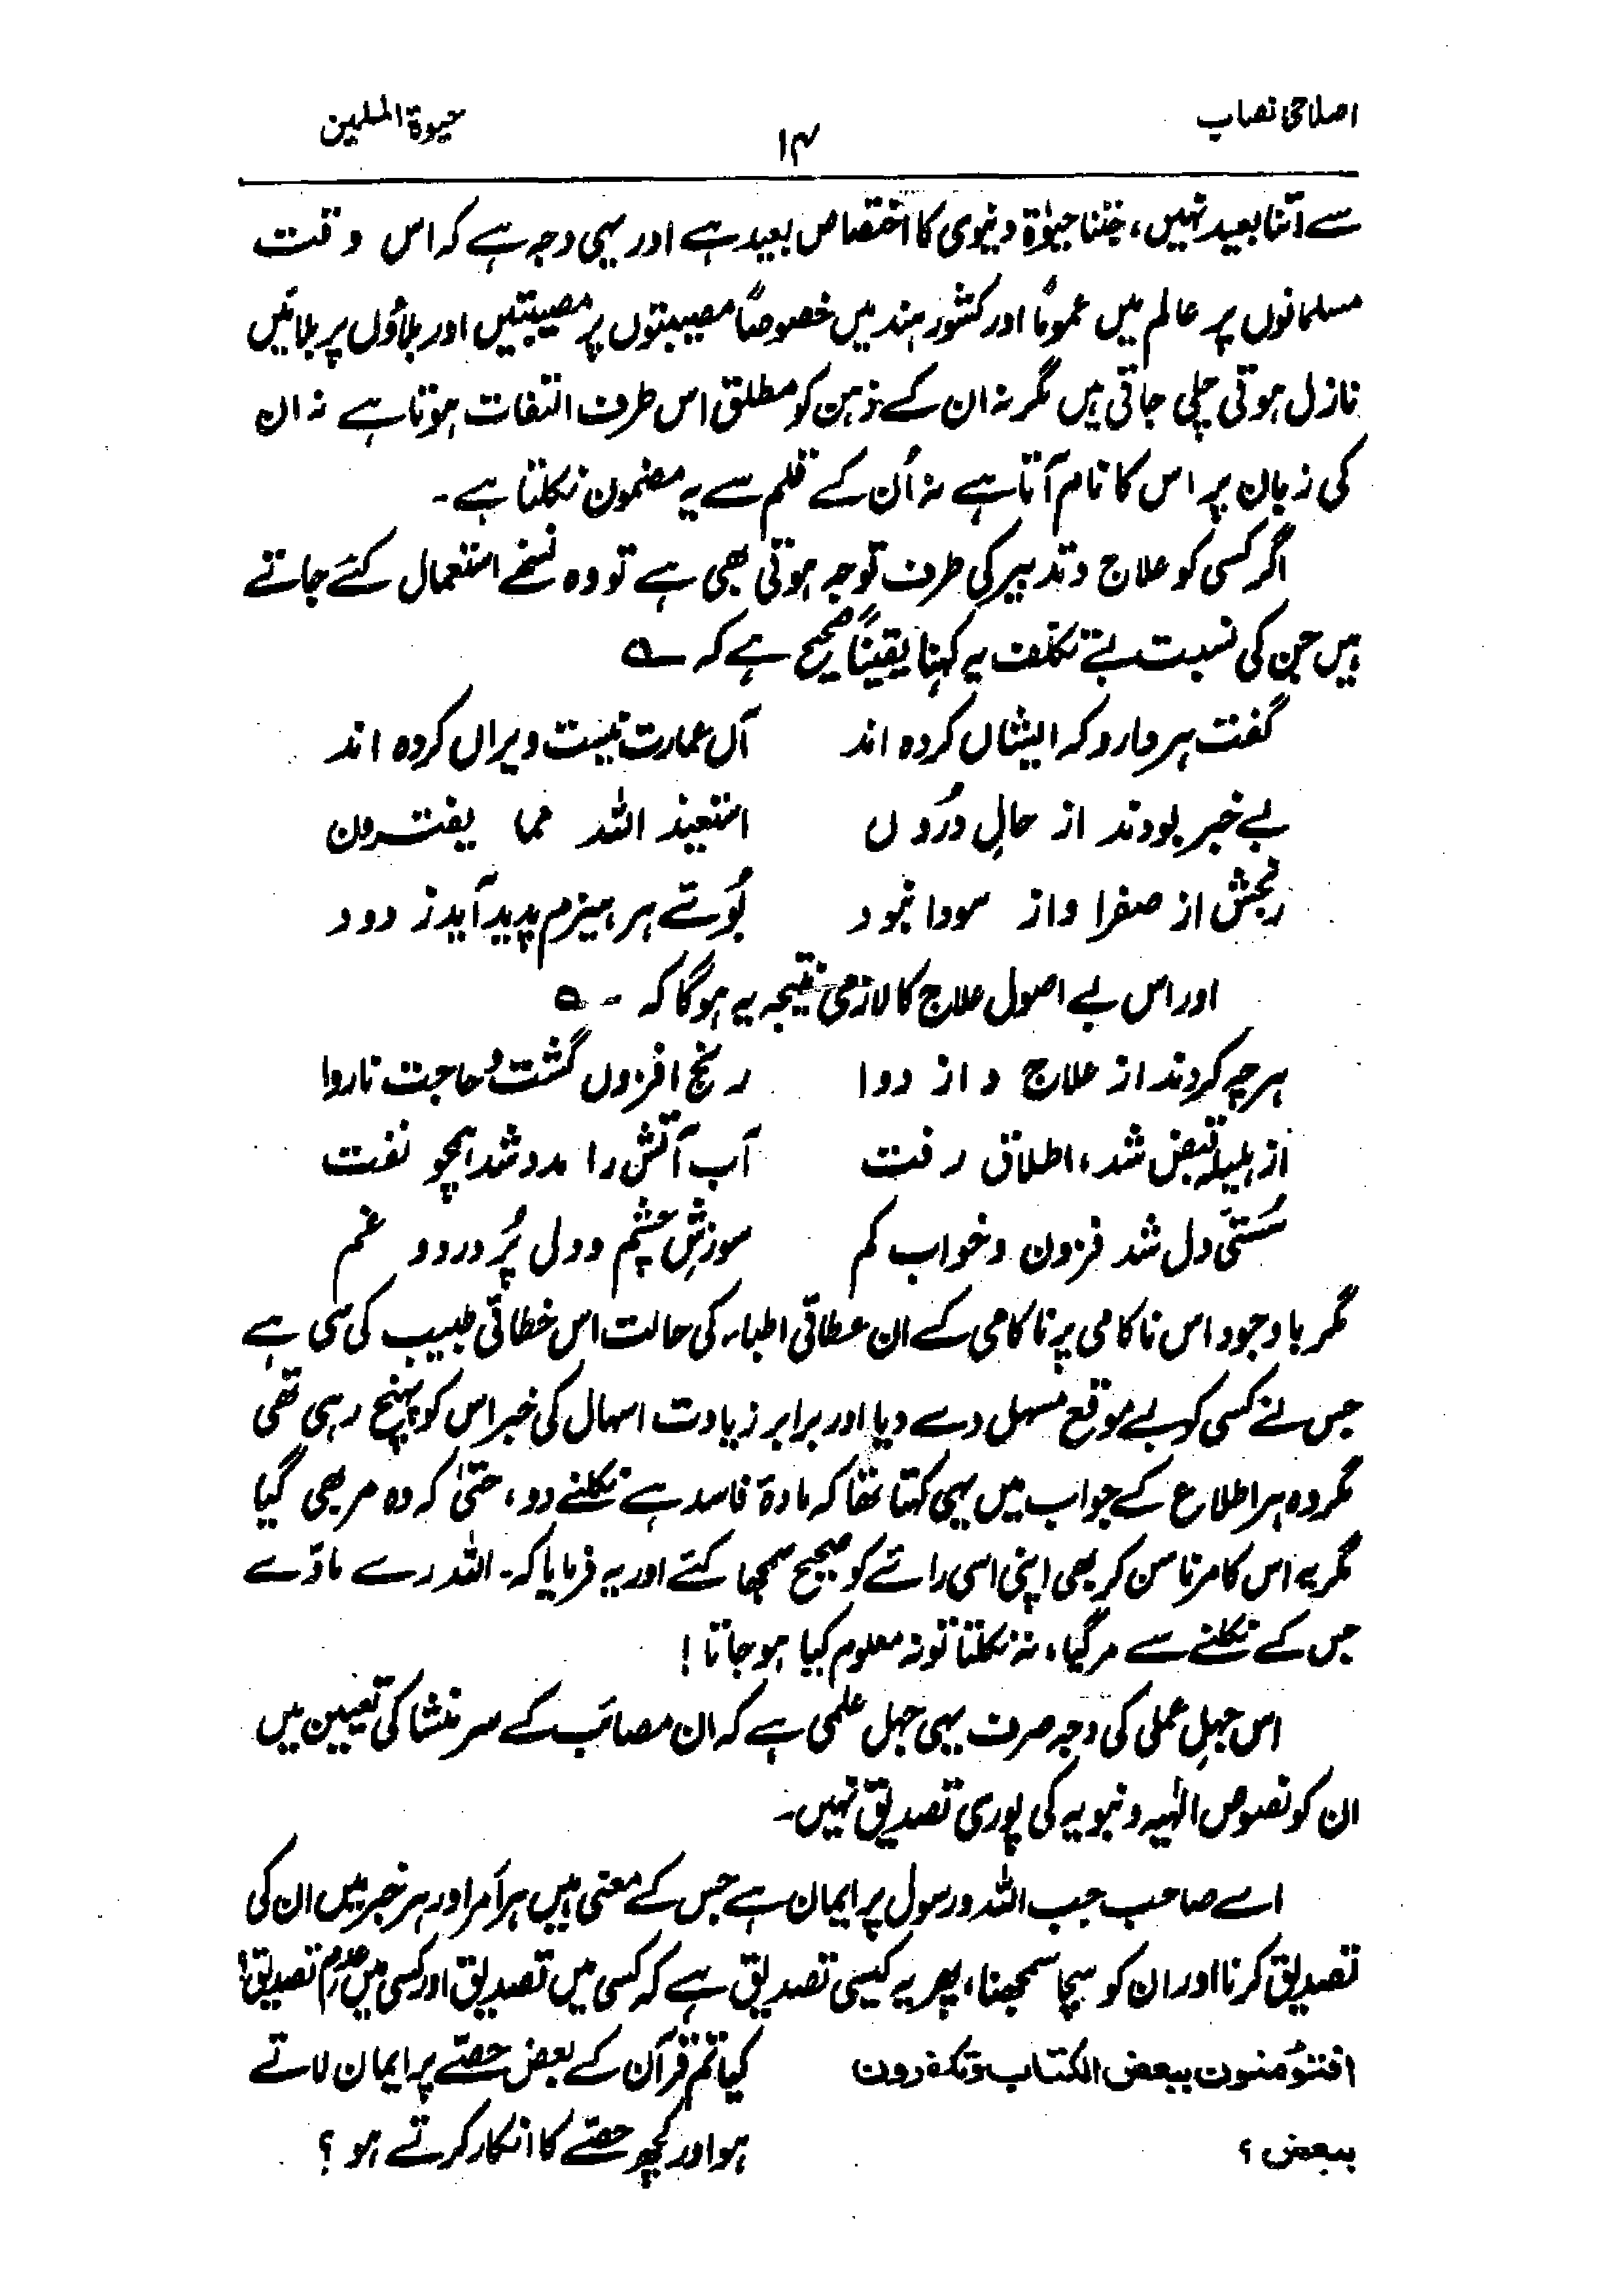 اصلاحی نصاب
۱۴
حیوۃ المسلمین
سے اتنا بعید نہیں، جتنا حیوٰۃ دنیوی کا اختصاص بعید ہے اور یہی وجہ ہے کہ اس وقت
مسلمانوں پر عالم میں عموماً اور کشور ہند میں خصوصاً مصیبتوں پر مصیبتیں اور بلاؤں پر بلائیں
نازل ہوتی چلی جاتی ہیں مگر نہ ان کے ذہن کو مطلق اس طرف التفات ہوتا ہے نہ ان
کی زبان پر اس کا نام آتا ہے نہ اُن کے قلم سے یہ مضمون نکلتا ہے۔
اگر کسی کو علاج و تدبیر کی طرف توجہ ہوتی بھی ہے تو وہ نسخے استعمال کئے جاتے
ہیں جن کی نسبت بے تکلف یہ کہنا یقیناً صحیح ہے کہ ؎
گفت ہر دارو کہ ایشاں کردہ اند آں عمارت نیست ویراں کردہ اند
بے خبر بودند از حالِ دروں استعیذ اللہ مما یفترون
رنجش از صفرا واز سودا نبود بُوئے ہر ہیزم پدید آید ز دود
اور اس بے اصول علاج کا لازمی نتیجہ یہ ہوگا کہ ؎
ہرچہ کردند از علاج و از دوا رنج افزوں گشت و حاجت ناروا
از ہلیلہ قبض شد، اطلاق رفت آب آتش را مدد شد ہمچو نفت
سُستیِٔ دل شد فزون وخواب کم سوزشِ چشم و دل پُر درد و غم
مگر باوجود اس ناکامی پر ناکامی کے ان عطائی اطباء کی حالت اس خطائی طبیب کی سی ہے
جس نے کسی کو بے موقع مسہل دے دیا اور برابر زیادت اسہال کی خبر اس کو پہنچ رہی تھی
مگر وہ ہر اطلاع کے جواب میں یہی کہتا تھا کہ مادۂ فاسد ہے نکلنے دو، حتیٰ کہ وہ مر بھی گیا
مگر یہ اس کا مرنا سن کر بھی اپنی اسی رائے کو صحیح سمجھا کئے اور یہ فرمایا کہ۔ اللہ رے مادّے
جس کے نکلنے سے مرگیا، نہ نکلتا تو نہ معلوم کیا ہو جاتا!
اس جہلِ عملی کی وجہ صرف یہی جہل علمی ہے کہ ان مصائب کے سر منشا کی تعیین میں
ان کو نصوص الٰہیہ و نبویہ کی پوری تصدیق نہیں۔
اے صاحب جب اللہ و رسول پر ایمان ہے جس کے معنی ہیں ہر اَمر اور ہر خبر میں ان کی
تصدیق کرنا اور ان کو سچا سمجھنا، پھر یہ کیسی تصدیق ہے کہ کسی میں تصدیق اور کسی میں عدم تصدیق!
افتؤمنون ببعض الکتاب وتکفرون کیا تم قرآن کے بعض حصّے پر ایمان لاتے
ببعض؟ ہو اور کچھ حصّے کا انکار کرتے ہو؟